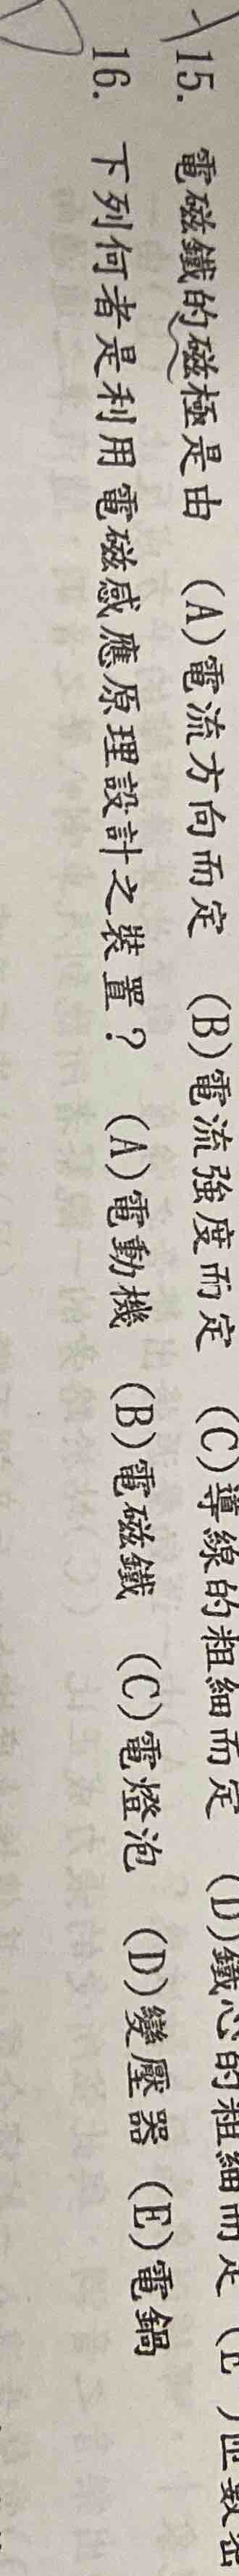 15. 電磁鐵的磁極是由 (A)電流方向而定 (B)電流強度而定 (C)導線的粗細而定 (D)鐵心的粗細而定 (E)匝數
16. 下列何者是利用電磁感應原理設計之裝置？ (A)電動機 (B)電磁鐵 (C)電燈泡 (D)變壓器 (E)電鍋